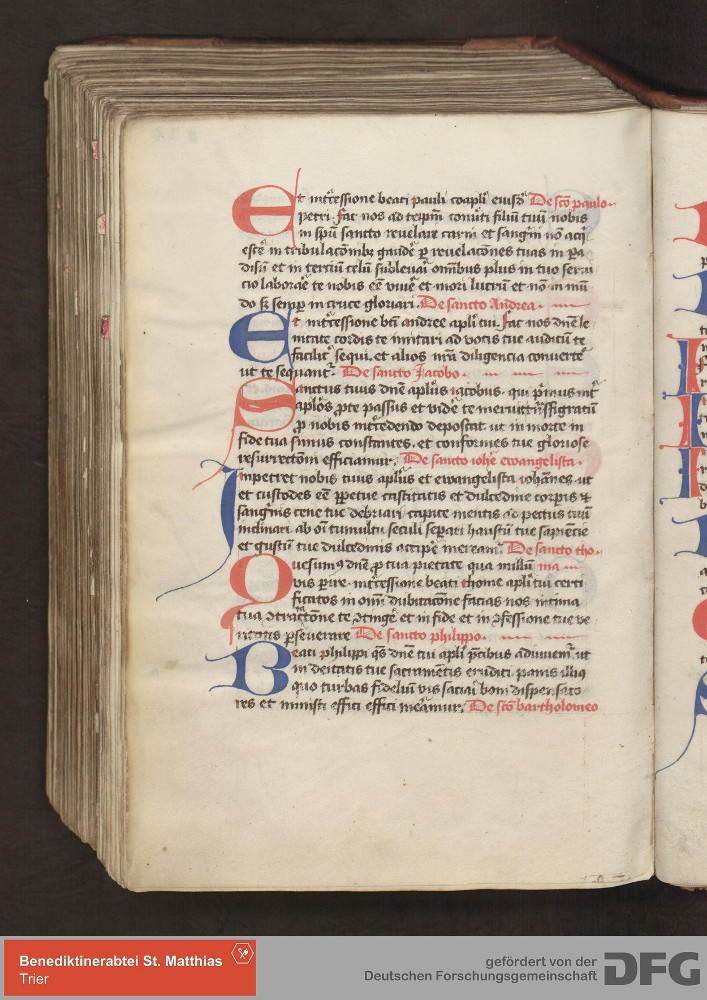 Et int'cessione beati pauli coapli eiusd' De scō paulo
petri. fac nos ad teipm̄ conuti filiū tuū nobis
in spū sancto reuelare carni et sangni nō acq̄
esce in tribulacōnibꝫ gaude' ꝑ reuelacōnes tuas in pa
disū et in terciū celū subleuai omībus plus in tuo serui
cio laborae' te nobis eē viue' et mori lucrū et nō in mū
do sꝫ semp' in cruce gloriari. De sancto Andrea.
Et int'cessione bt̄i andree apl̄i tui. fac nos dn̄e le
nitate cordis te imitari ad vocis tue auditū te
facilit' sequi. et alios mīa diligencia conuerte'
ut te sequant'. De sancto Jacobo.
Sanctus tuus dn̄e apl̄us iacobus. qui p'mus int'
apl̄os ꝓ te passus et vide' te meruit trāsfiguratū
ꝓ nobis int'cedendo deposcat ut in morte in
fide tua simus constantes. et conformes tue gloriose
resurrectōni efficiamur. De sancto ioh'e ewangelista.
Impetret nobis tuus apl̄us et ewangelista iohānes. ut
et custodes eē ꝑpetue castitatis et dulcedine corpis et
sangnis cene tue debriari capite mentis ad pectus tuū
inclinari. ab oī tumultu seculi separi haustū tue sapiencie
et gustū tue dulcedinis accipe' meream'. De sancto tho.
Quesumꝰ dn̄e ꝓ tua pietate qua nullū ma
vis perire. int'cessione beati thome apl̄i tui certi
ficatos in omī dubitacōne facias nos intima
tua ꝯtractōne te ꝯtinge' et in fide et in ꝯfessione tue ve
ritatis ꝑseuerare De sancto philippo.
Beati philippi qs dn̄e tui apl̄i p̄cibus adiuuem' ut
in deitatis tue sacramētis eruditi. panis illiꝰ
quo turbas fideliū vis saciai boni dispensato
res et ministri effici effici mereamur. De scō bartholomeo
Benediktinerabtei St. Matthias
Trier
gefördert von der
Deutschen Forschungsgemeinschaft
DFG